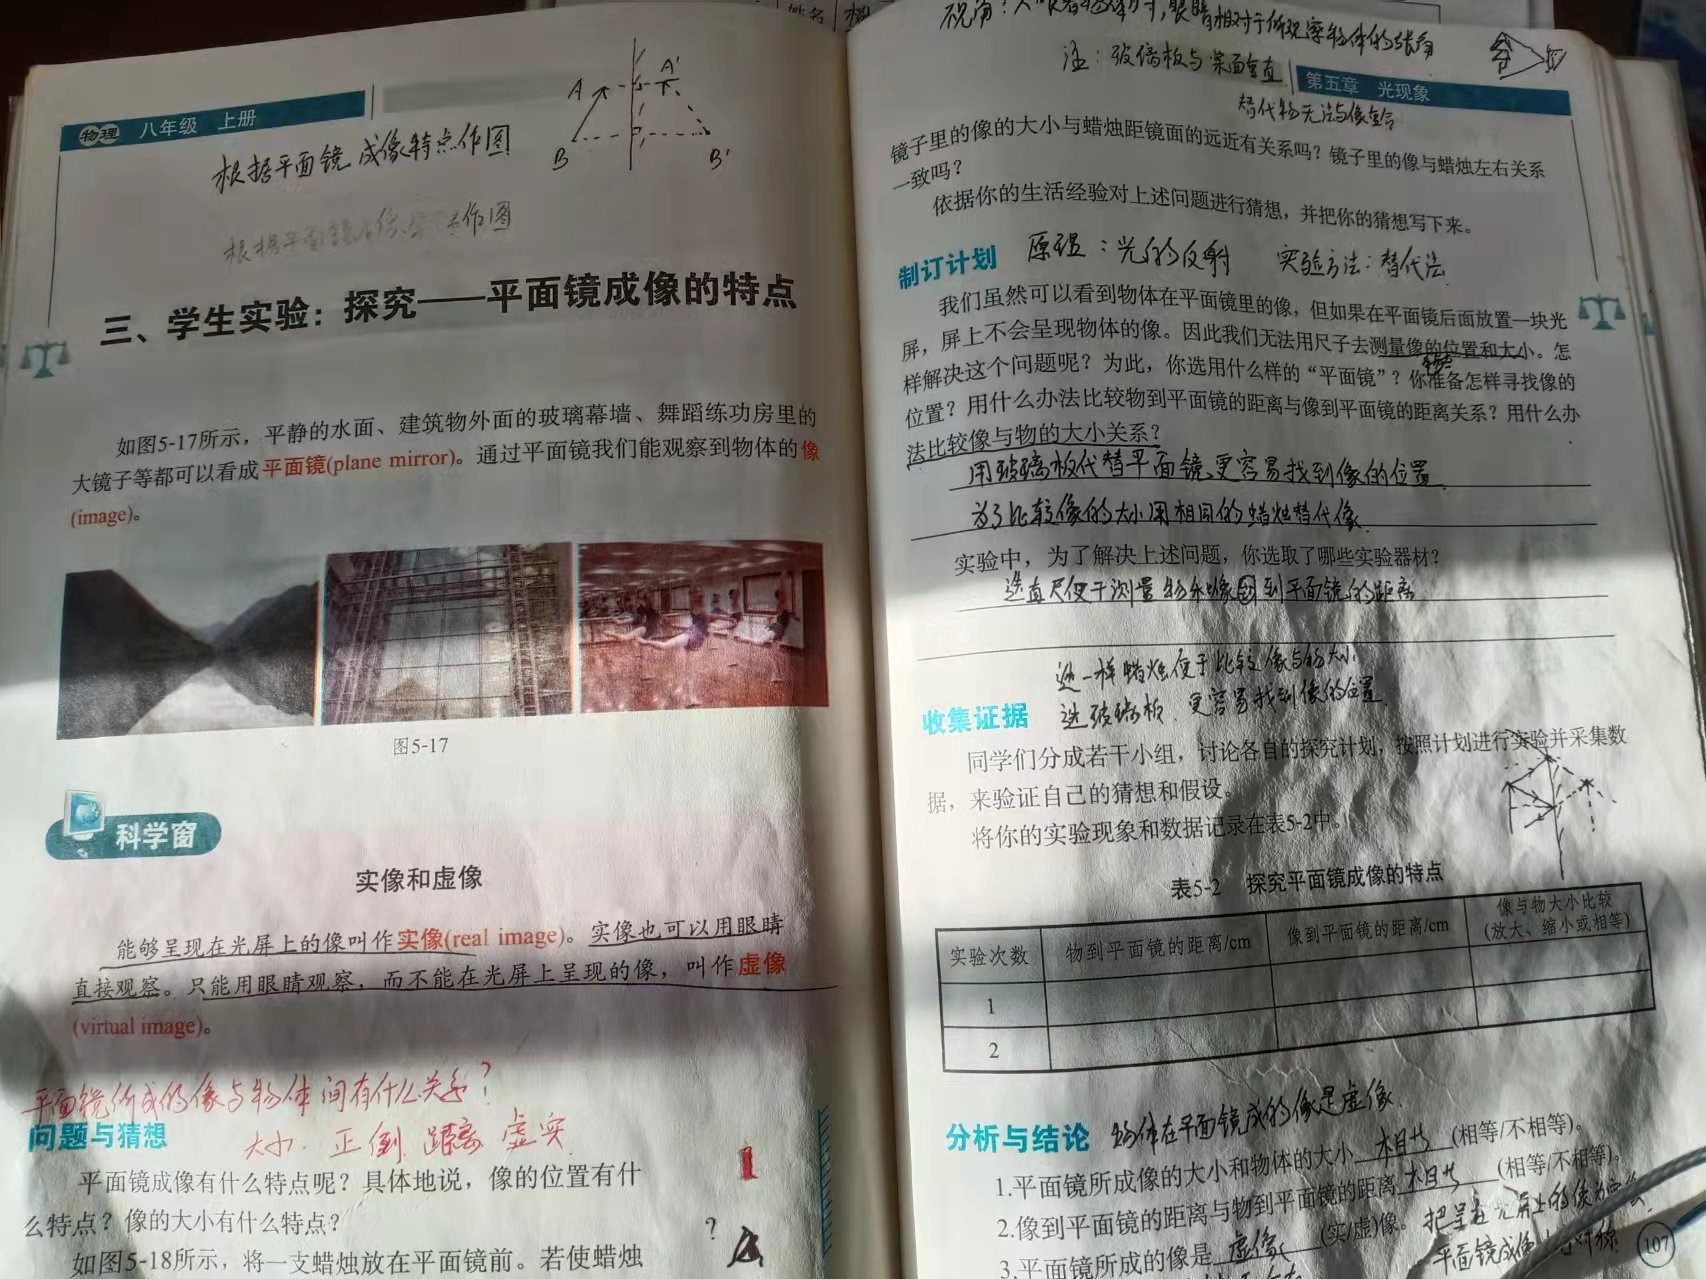 物理 八年级 上册
A
A'
B
B'
根据平面镜成像特点作图
根据平面镜 作图
三、学生实验：探究——平面镜成像的特点
如图5-17所示，平静的水面、建筑物外面的玻璃幕墙、舞蹈练功房里的
大镜子等都可以看成平面镜(plane mirror)。通过平面镜我们能观察到物体的像
(image)。
图5-17
科学窗
实像和虚像
能够呈现在光屏上的像叫作实像(real image)。实像也可以用眼睛
直接观察。只能用眼睛观察，而不能在光屏上呈现的像，叫作虚像
(virtual image)。
平面镜所成的像与物体间有什么关系？
大小 正倒 距离 虚实
问题与猜想
平面镜成像有什么特点呢？具体地说，像的位置有什
么特点？像的大小有什么特点？
如图5-18所示，将一支蜡烛放在平面镜前。若使蜡烛
?
姓名
视角： 眼睛相对于所观察物体的张角
注：玻璃板与桌面垂直
第五章 光现象
替代物无法与像重合
镜子里的像的大小与蜡烛距镜面的远近有关系吗？镜子里的像与蜡烛左右关系
一致吗？
依据你的生活经验对上述问题进行猜想，并把你的猜想写下来。
制订计划 原理：光的反射 实验方法：替代法
我们虽然可以看到物体在平面镜里的像，但如果在平面镜后面放置一块光
屏，屏上不会呈现物体的像。因此我们无法用尺子去测量像的位置和大小。怎
样解决这个问题呢？为此，你选用什么样的“平面镜”？你准备怎样寻找像的
位置？用什么办法比较物到平面镜的距离与像到平面镜的距离关系？用什么办
法比较像与物的大小关系？
用玻璃板代替平面镜更容易找到像的位置
为了比较像的大小用相同的蜡烛替代像
实验中，为了解决上述问题，你选取了哪些实验器材？
选直尺便于测量物和像 到平面镜的距离
选一样蜡烛便于比较像与物大小
选玻璃板 更容易找到像的位置
收集证据
同学们分成若干小组，讨论各自的探究计划，按照计划进行实验并采集数
据，来验证自己的猜想和假设。
将你的实验现象和数据记录在表5-2中。
表5-2 探究平面镜成像的特点
实验次数 物到平面镜的距离/cm 像到平面镜的距离/cm 像与物大小比较
(放大、缩小或相等)
1
2
物体在平面镜成的像是虚像
分析与结论
1.平面镜所成像的大小和物体的大小 相等 (相等/不相等)。
2.像到平面镜的距离与物到平面镜的距离 相等 (相等/不相等)。
3.平面镜所成的像是 虚像 (实/虚)像。
把呈在光屏上的像
平面镜成像 对称
107